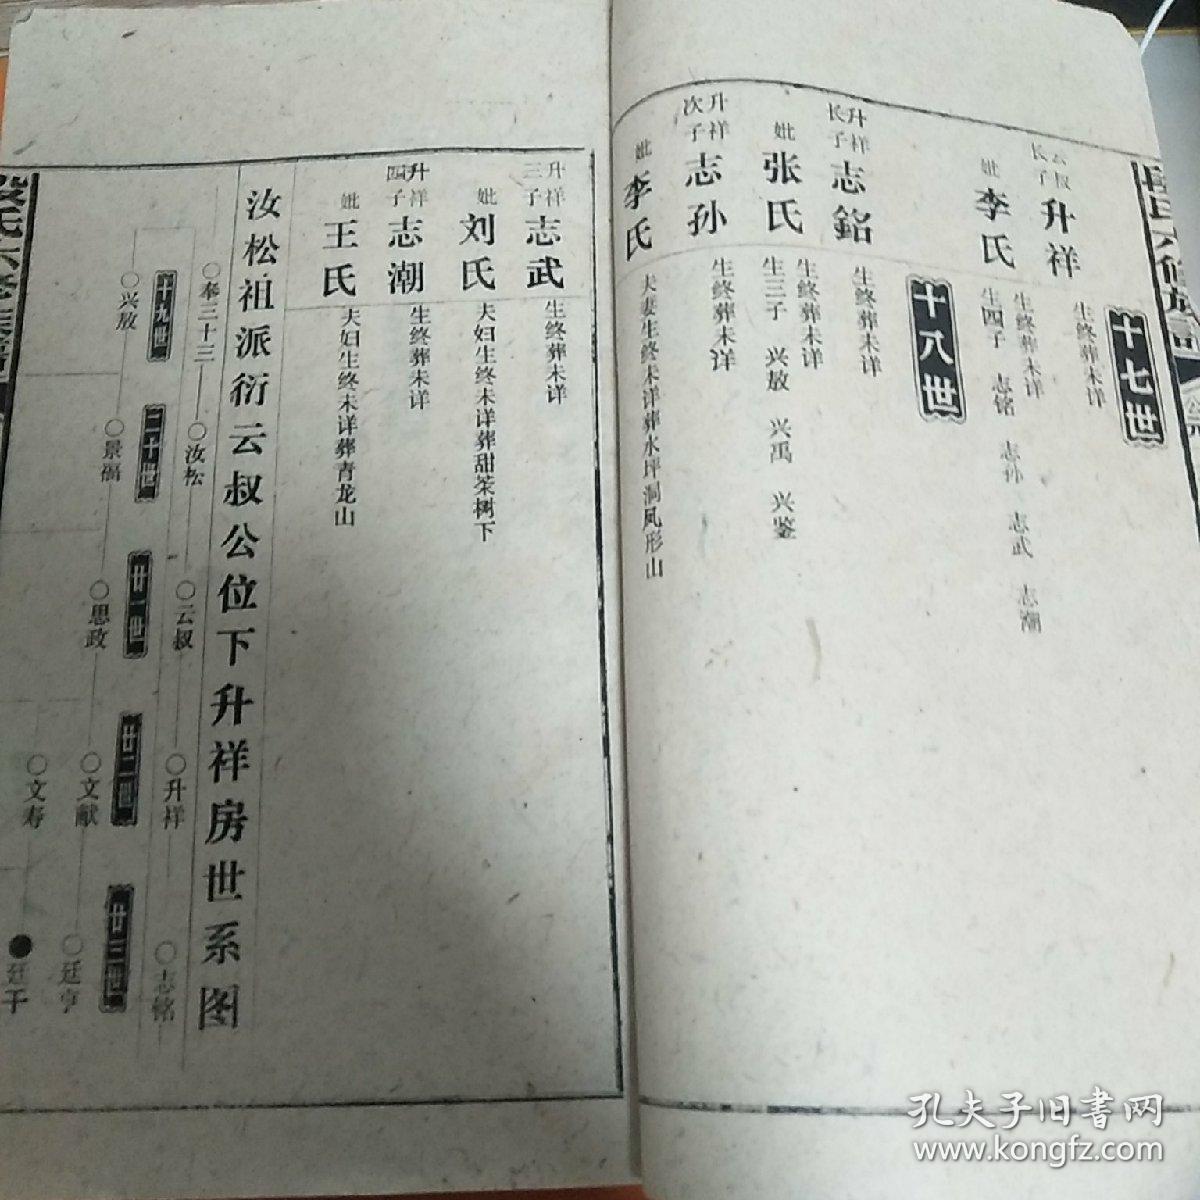 段氏六修族谱
十七世
云叔长子 升祥 生终葬未详
妣 李氏 生终葬未详
生四子 志铭 志孙 志武 志潮
十八世
升祥长子 志銘 生终葬未详
妣 张氏 生终葬未详
生三子 兴放 兴禹 兴鉴
升祥次子 志孙 生终葬未详
妣 李氏 夫妻生终未详葬水坪洞凤形山
升祥三子 志武 生终葬未详
妣 刘氏 夫妇生终未详葬甜茶树下
升祥四子 志潮 生终葬未详
妣 王氏 夫妇生终未详葬青龙山
汝松祖派衍云叔公位下升祥房世系图
○奉三十三 ○汝松 ○云叔 ○升祥 ○志铭
十九世 二十世 廿一世 廿二世 廿三世
○兴放 ○景福 ○思政 ○文献 ○廷亨
○文寿 ●廷干
段氏六修族谱
孔夫子旧书网
www.kongfz.com